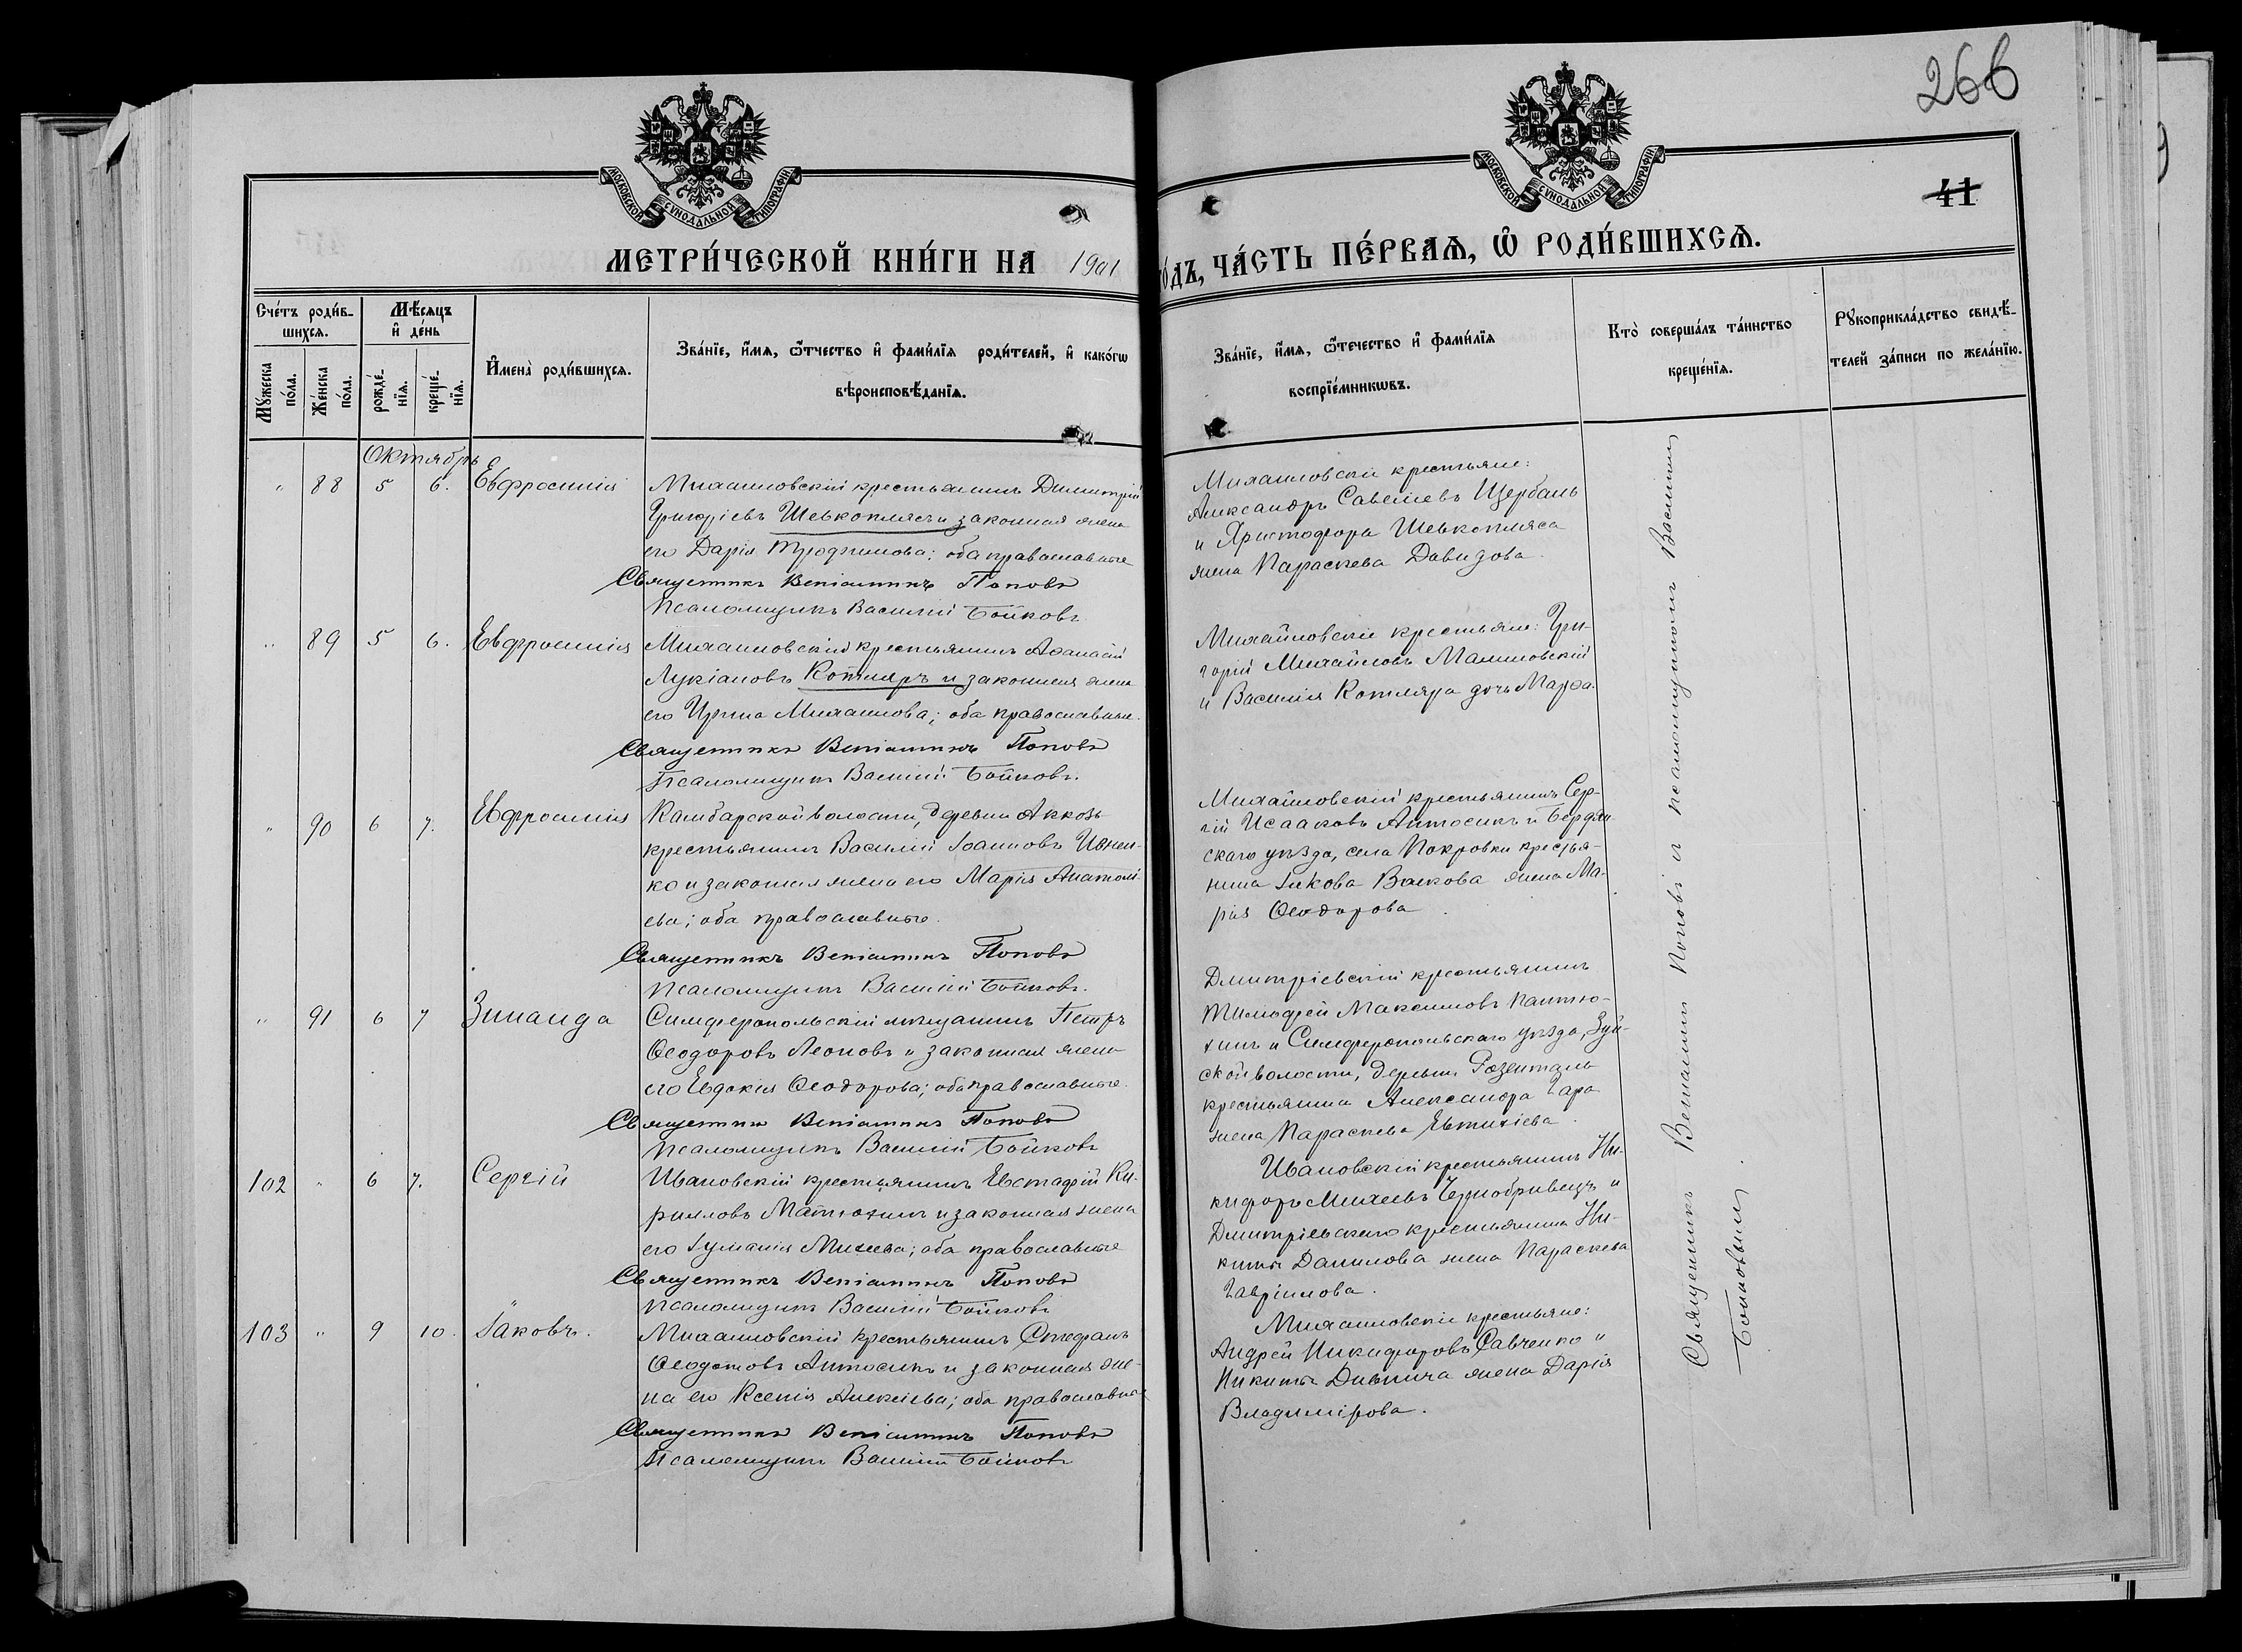 266
41
МОСКОВСКОЙ СѴНОДАЛЬНОЙ ТИПОГРАФІИ
МОСКОВСКОЙ СѴНОДАЛЬНОЙ ТИПОГРАФІИ
МЕТРИ́ЧЕСКОЙ КНИ́ГИ НА 1901
го́дъ, ЧА́СТЬ ПЕ́РВАѦ, Ѽ РОДИ́ВШИХСѦ.
Сче́тъ роди́в-
шихсѧ.
Мꙋжеска
по́ла.
Же́нска
по́ла.
Мѣ́сѧцъ
и҆ де́нь
рожде́-
нїѧ.
креще́-
нїѧ.
И҆мена̀ роди́вшихсѧ.
Зва́нїе, и҆́мѧ, ѻ҆́тчество и҆ фами́лїѧ роди́телей, и҆ како́гѡ
вѣроисповѣ́данїѧ.
Зва́нїе, и҆́мѧ, ѻ҆те́чество и҆ фами́лїѧ
воспрїе́мникѡвъ.
Кто̀ соверша́лъ та́инство
креще́нїѧ.
Рꙋкоприкла́дство свидѣ́-
телей за́писи по жела́нїю.
Октябрь
" 88 5 6. Евфросинія
Михаиловскій крестьянинъ Димитрій
Григоріевъ Шевкоплясъ и законная жена
его Дарія Трофимова; оба православные
Священникъ Веніаминъ Поповъ
Псаломщикъ Василій Бойковъ
Михаиловскіе крестьяне:
Александръ Савеліевъ Щербань
и Христофора Шевкопляса
жена Параскева Давидова.
" 89 5 6. Евфросинія
Михаиловскій крестьянинъ Аѳанасій
Лукіановъ Котляръ и законная жена
его Ирина Михаилова; оба православные.
Священникъ Веніаминъ Поповъ
Псаломщикъ Василій Бойковъ.
Михайловскіе крестьяне: Гри-
горій Михайловъ Малиновскій
и Василія Котляра дочь Марѳа.
" 90 6 7. Евфросинія
Камбарской волости, деревни Аккозъ
крестьянинъ Василій Іоанновъ Ивнен-
ко и законная жена его Марія Анатолі-
ева; оба православные.
Священникъ Веніаминъ Поповъ
Псаломщикъ Василій Бойковъ.
Михайловскій крестьянинъ Сер-
гій Исааковъ Антосикъ и Бердян-
скаго уѣзда, села Покровки крестья-
нина Іакова Волкова жена Ма-
рія Ѳеодорова.
" 91 6 7 Зинаида
Симферопольскій мѣщанинъ Петръ
Ѳеодоровъ Леоновъ и законная жена
его Евдокія Ѳеодорова; оба православные.
Священникъ Веніаминъ Поповъ
Псаломщикъ Василій Бойковъ
Дмитріевскій крестьянинъ
Тимофей Максимовъ Пантю-
хинъ и Симферопольскаго уѣзда, Зуй-
ской волости, деревни Розенталь
крестьянина Александра Гара
жена Параскева Евтихіева.
102 " 6 7. Сергій
Ивановскій крестьянинъ Евстафій Ки-
рилловъ Матюхинъ и законная жена
его Іуліанія Михеева; оба православные
Священникъ Веніаминъ Поповъ
Псаломщикъ Василій Бойковъ
Ивановскій крестьянинъ Ни-
кифоръ Михеевъ Чернобривецъ и
Дмитріевскаго крестьянина Ни-
киты Данилова жена Параскева
Гавріилова.
103 " 9 10. Іаковъ.
Михаиловскій крестьянинъ Стефанъ
Ѳеодотовъ Антосикъ и законная же-
на его Ксенія Алексіева; оба православные
Священникъ Веніаминъ Поповъ
Псаломщикъ Василій Бойковъ
Михаиловскіе крестьяне:
Андрей Никифоровъ Савченко и
Никиты Дивнича жена Дарія
Владимірова.
Священникъ Веніаминъ Поповъ и псаломщикомъ Василіемъ
Бойковымъ.